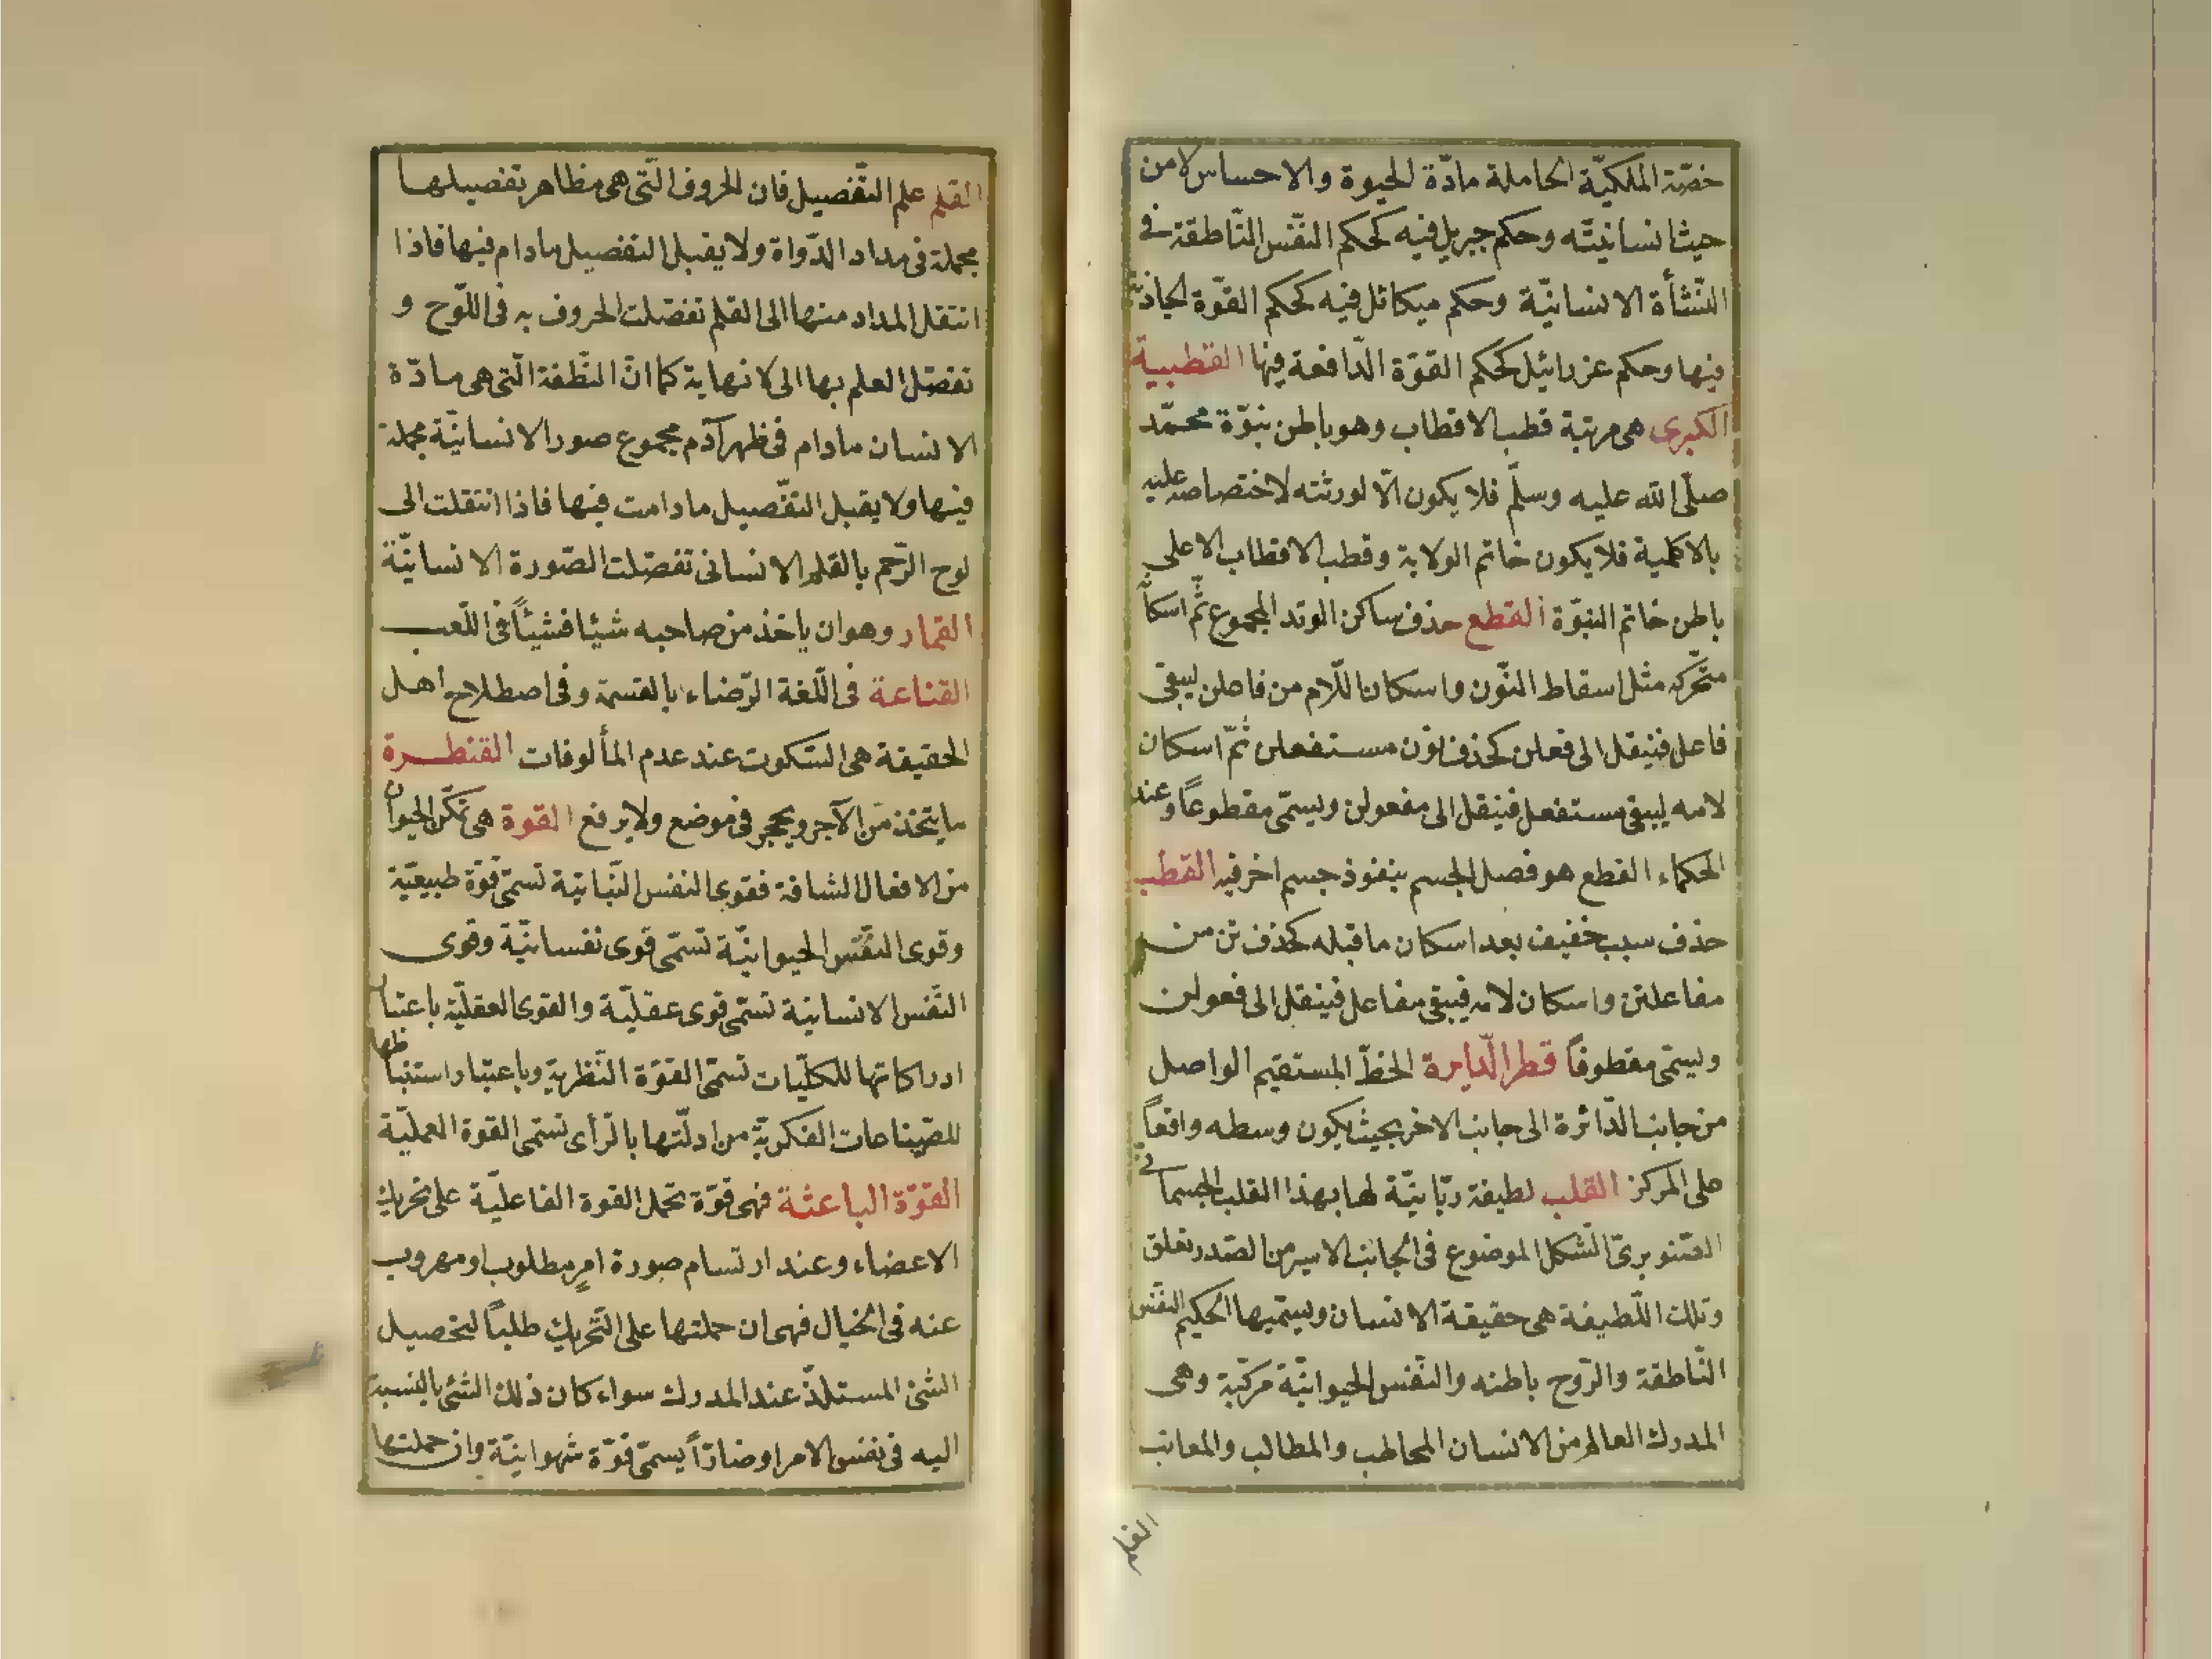 خصّته الملكيّة الحاملة مادّة الحيوة والاحساس لا من
حيث انسانيتّه وحكم جبريل فيه كحكم النّفس النّاطقة فى
النّشأة الانسانيّة وحكم ميكائل فيه كحكم القوّة الجاذبة
فيها وحكم عزرائيل كحكم القوّة الدّافعة فيها القطبية
الكبرى هى مرتبة قطب الاقطاب وهو باطن نبوّة محمّد
صلّى الله عليه وسلّم فلا يكون الّا لورثته لاختصاصه عليه
بالاكملية فلا يكون خاتم الولاية وقطب الاقطاب الا على
باطن خاتم النبوّة القطع حذف ساكن الوتد المجموع ثمّ اسكان
متحّركه مثل اسقاط النّون واسكان اللّام من فاعلن ليبقى
فاعل فينقل الى فعلن كحذف نون مستفعلن ثمّ اسكان
لامه ليبقى مستفعل فينقل الى مفعولن ويسمّى مقطوعاً وعند
الحكماء القطع هو فصل الجسم بنفوذ جسم اخر فيه القطب
حذف سبب خفيف بعد اسكان ما قبله كحذف تن من
مفاعلتن واسكان لامه فيبقى مفاعل فينقل الى فعولن
ويسمّى مقطوفاً قطر الدّايرة الخطّ المستقيم الواصل
من جانب الدّائرة الى جانب الاخر بحيث يكون وسطه واقعاً
على المركز القلب لطيفة ربّانيّة لها بهذا القلب الجسمانى
الصّنوبرىّ الشّكل الموضوع فى الجانب الايسر من الصّدر تعلق
وتلك اللّطيفة هى حقيقة الانسان ويسمّيها الحكيم النفّس
النّاطقة والرّوح باطنه والنّفس الحيوانيّة مركّبة وهى
المدرك العالم من الانسان المخاطب والمطالب والمعاتب
القلم
القلم علم التّفصيل فان الحروف الّتى هى مظاهر تفصيلها
مجملة فى مداد الدّواة ولا يقبل التفصيل مادام فيها فاذا
انتقل المداد منها الى القلم تفصّلت الحروف به فى اللّوح و
تفصّل العلم بها الى لا نهاية كما انّ النّطفة الّتى هى مادّة
الانسان مادام فى ظهر آدم مجموع صور الانسانيّة مجملة
فيها ولا يقبل التفّصيل مادامت فيها فاذا انتقلت الى
لوح الرّحم بالقلم الانسانى تفصّلت الصّورة الانسانيّة
القمار وهو ان ياخذ من صاحبه شيئا فشيئاً فى اللّعب
القناعة فى اللّغة الرّضاء بالقسمة وفى اصطلاح اهل
الحقيقة هى السّكوت عند عدم المألوفات القنطرة
ما يتخذ من الآجر ويحجر فى موضع ولا يرفع القوة هى تمكّن الحيوان
من الافعال الشاقة فقوى النفس النّباتية تسمّى قوة طبيعيّة
وقوى النّفس الحيوانيّة تسمّى قوى نفسانيّة وقوى
النّفس الانسانية تسمّى قوى عقليّة والقوى العقليّة باعتبار
ادراكاتها للكلّيات تسمّى القوّة النّظرية وباعتبار استنباطها
للصّيناعات الفكريّة من ادلّتها بالرّأى تسمّى القوة العمليّة
القوّة الباعثة فهى قوّة تحمل القوة الفاعليّة على تحريك
الاعضاء وعند ارتسام صورة امرٍ مطلوب او مهروب
عنه فى الخيال فهى ان حملتها على التّحريك طلباً لتحصيل
الشئ المستلذّ عند المدرك سواء كان ذلك الشئ بالنسبة
اليه فى نفس الامر او ضارّاً يسمّى قوّة شهوانيّة وان حملتها